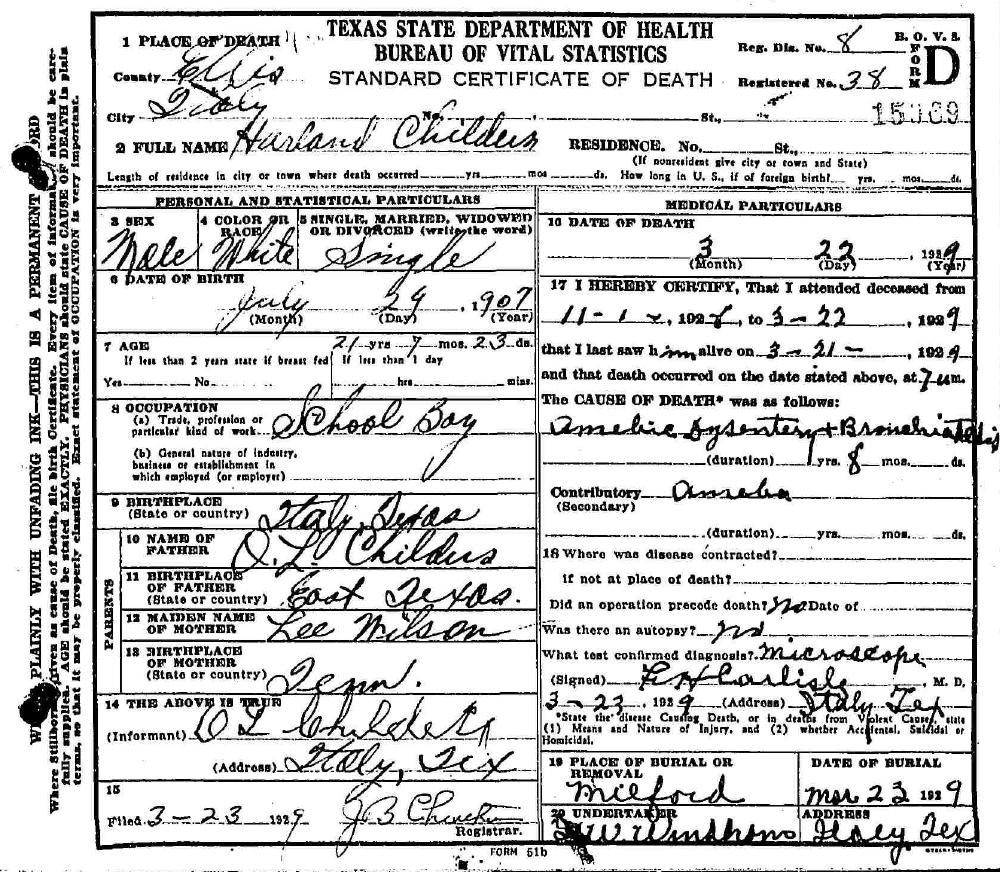 TEXAS STATE DEPARTMENT OF HEALTH
BUREAU OF VITAL STATISTICS
STANDARD CERTIFICATE OF DEATH
Reg. Dis. No. 8
Registered No. 38
B. O. V. S.
FORM D
1 PLACE OF DEATH
County Ellis
City Italy No. St.,
2 FULL NAME Harland Childers
RESIDENCE. No. St.,
(If nonresident give city or town and State)
Length of residence in city or town where death occurred yrs. mos. ds. How long in U. S., if of foreign birth? yrs. mos. ds.
PERSONAL AND STATISTICAL PARTICULARS
3 SEX
Male
4 COLOR OR RACE
White
5 SINGLE, MARRIED, WIDOWED OR DIVORCED (write the word)
Single
6 DATE OF BIRTH
July 29, 1907
(Month) (Day) (Year)
7 AGE 21 yrs 7 mos. 23 ds.
If less than 2 years state if breast fed If less than 1 day
Yes No hrs mins.
8 OCCUPATION
(a) Trade, profession or
particular kind of work School Boy
(b) General nature of industry,
business or establishment in
which employed (or employer)
9 BIRTHPLACE
(State or country) Italy, Texas
PARENTS
10 NAME OF FATHER O. L. Childers
11 BIRTHPLACE OF FATHER
(State or country) East Texas.
12 MAIDEN NAME OF MOTHER Lee Wilson
13 BIRTHPLACE OF MOTHER
(State or country) Tenn.
14 THE ABOVE IS TRUE
(Informant) O L Childers
(Address) Italy, Tex
15
Filed 3-23 1929 J B
Registrar.
MEDICAL PARTICULARS
16 DATE OF DEATH
3 22, 1929
(Month) (Day) (Year)
17 I HEREBY CERTIFY, That I attended deceased from
11-1, 1928, to 3-22, 1929
that I last saw him alive on 3-21-, 1929
and that death occurred on the date stated above, at 7 m.
The CAUSE OF DEATH* was as follows:
Amebic Dysentery + Bronchiectasis
(duration) yrs. 8 mos. ds.
Contributory Ameba
(Secondary)
(duration) yrs. mos. ds.
18 Where was disease contracted?
if not at place of death?
Did an operation precede death? No Date of
Was there an autopsy? No
What test confirmed diagnosis? Microscope
(Signed) Carlisle, M. D.
3-23, 1929 (Address) Italy Tex
*State the disease Causing Death, or in deaths from Violent Causes, state
(1) Means and Nature of Injury, and (2) whether Accidental, Suicidal or
Homicidal.
19 PLACE OF BURIAL OR REMOVAL
Milford
DATE OF BURIAL
Mar 23 1929
20 UNDERTAKER
ADDRESS
Italy Tex
FORM 51b
PLAINLY WITH UNFADING INK—THIS IS A PERMANENT